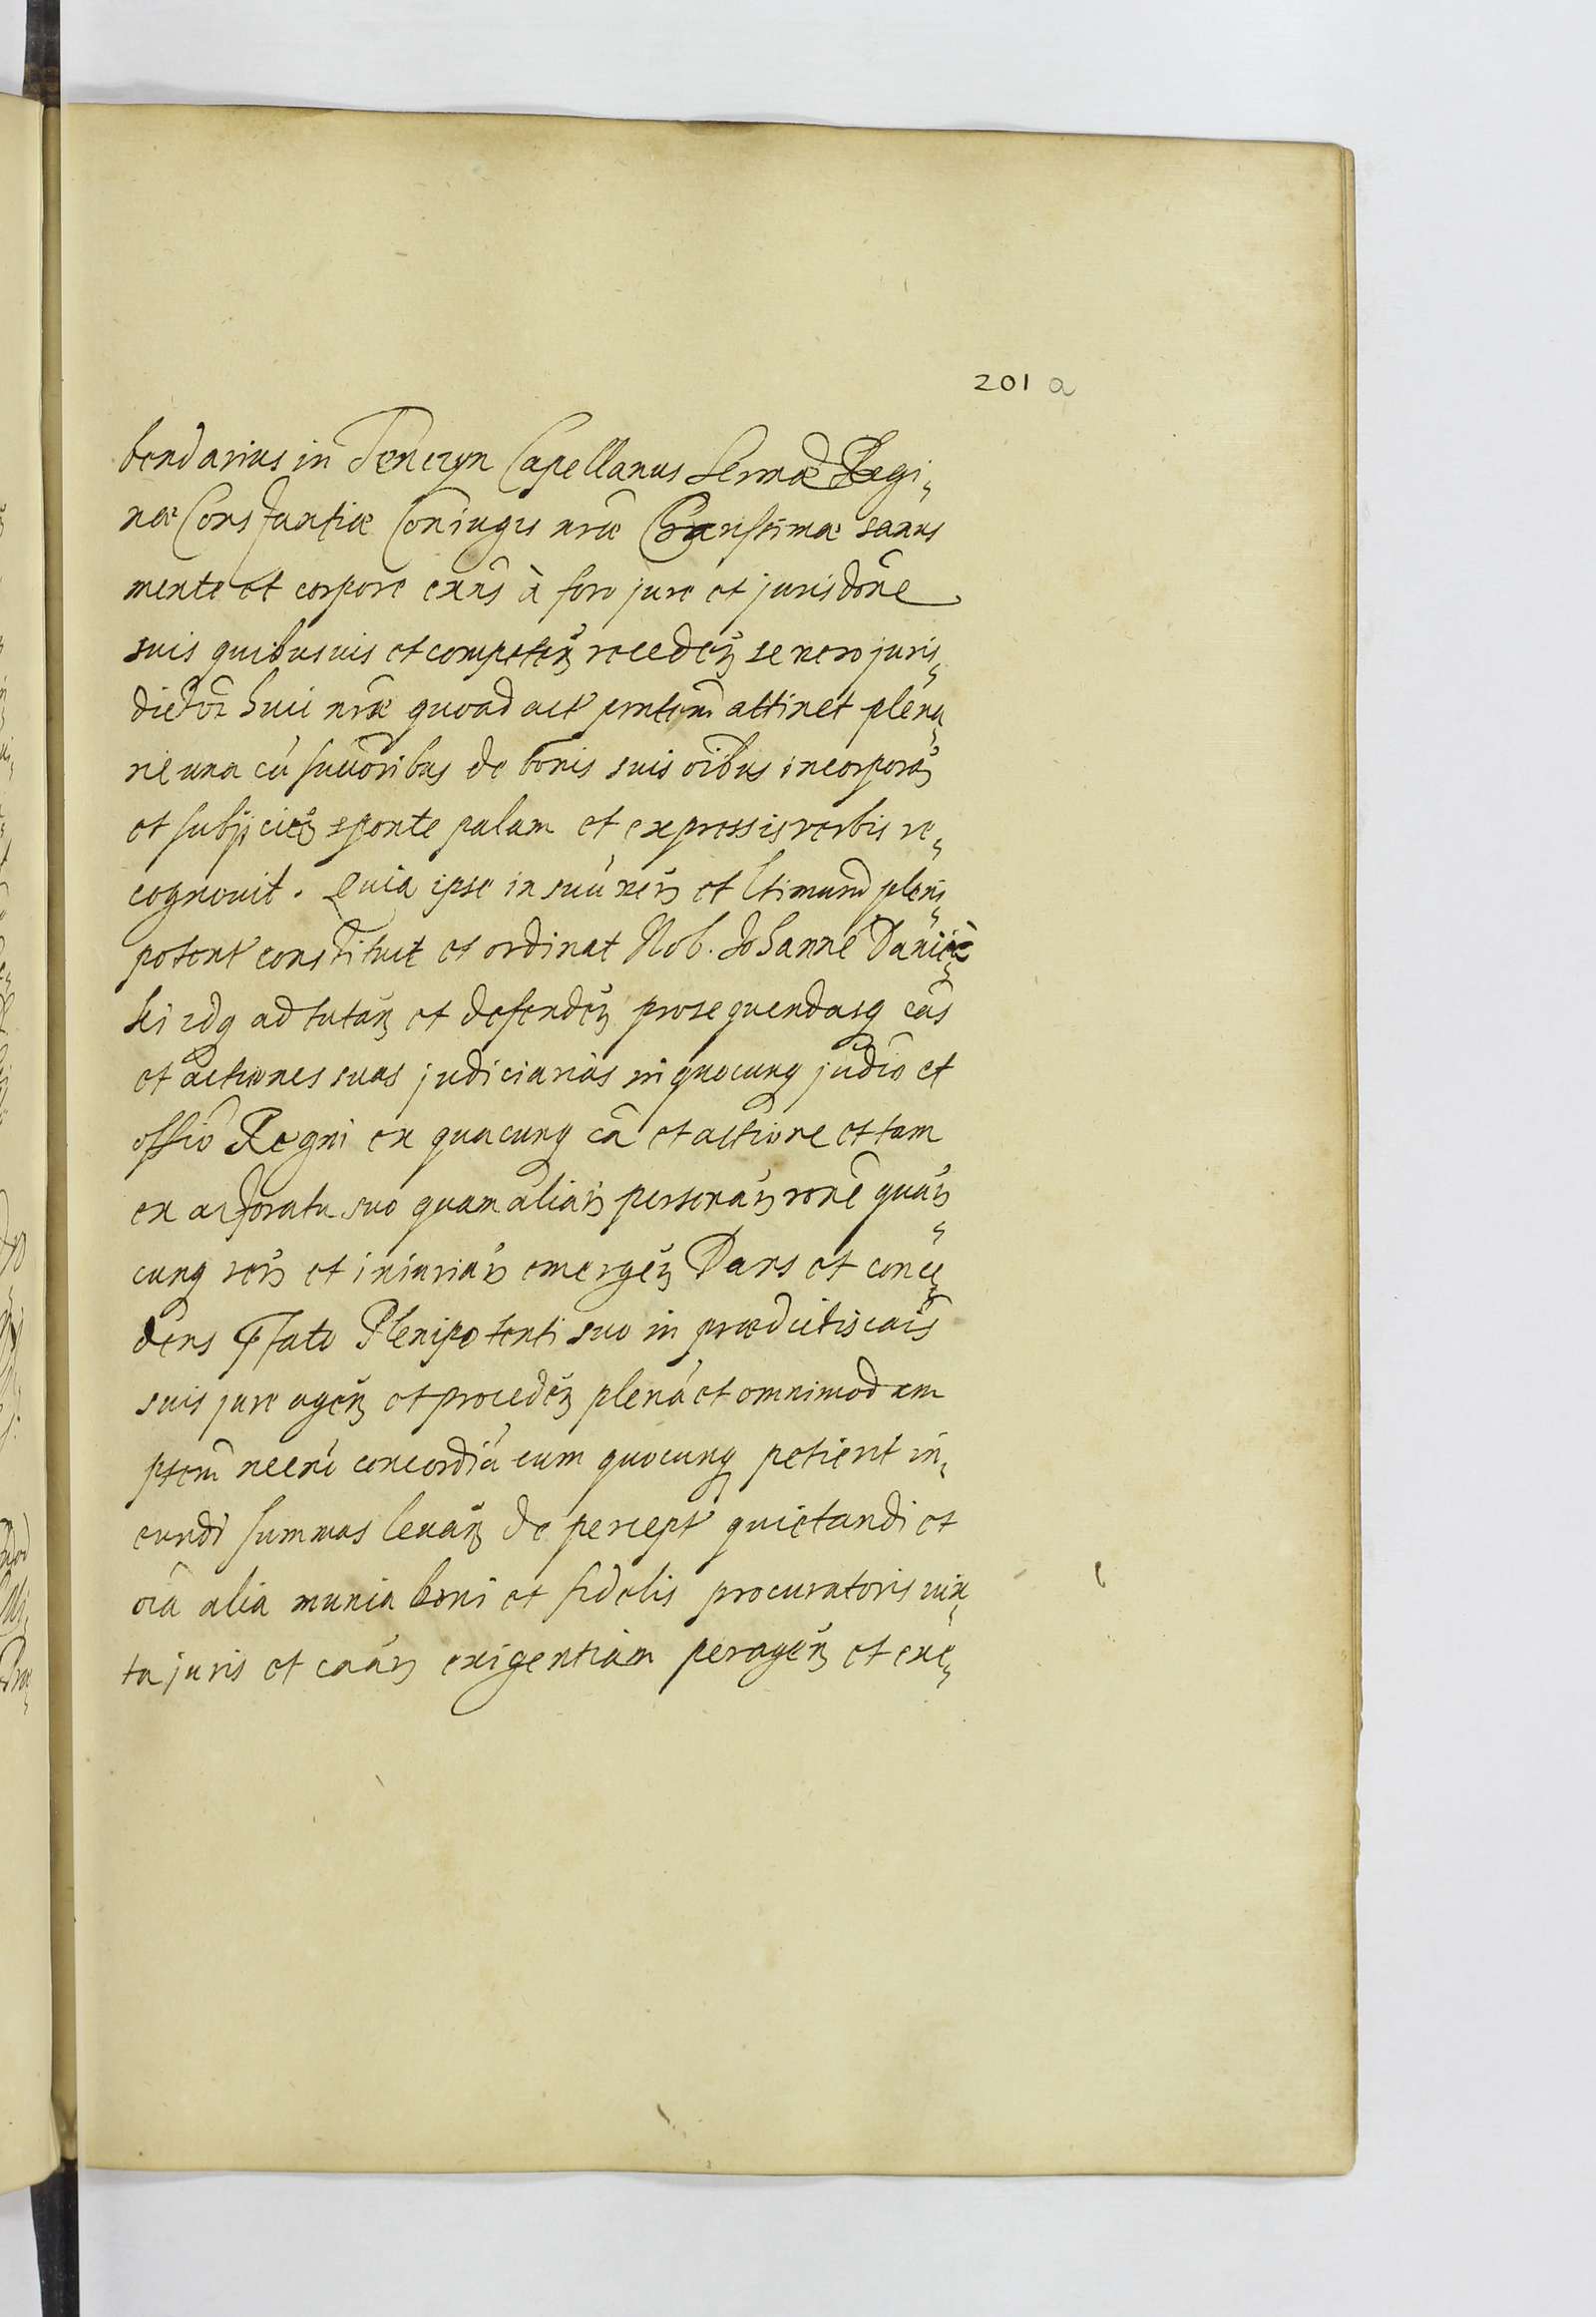 201 a
bendarius in Tenczyn Capellanus Sermæ Regi„
næ Constantiæ Coniugis nræ Charissimæ sanus
mente et corpore exns à foro jure et jurisdone
suis quibusuis et competen recedeñ se vero juris„
dictoi huic nræ quoad act pntem attinet plena„
rie una cũ succoribus de bonis suis oibus incorporañ
et subijcieñ sponte palam et expressis verbis re„
cognouit. Quia ipse in suũ verũ et ltimum pleni„
potent constituit et ordinat Nob. Johannẽ Daniec„
ki idq ad tutañ et defendeñ prosequendasq cas
et actiones suas judiciarias in quocunq judio et
offio Regni ex quacunq ca et actione et tam
ex actoratu suo quam aliaru personaru rone quaru„
cunq reru et iniuriaru emergeñ Dans et conce„
dens pfato Plenipotenti suo in prædictis cais
suis jure ageñ et procedeñ plenã et omnimodam
ptem necnõ concordiã cum quocunq petierit in„
eundi summas levañ de percept quietandi et
oia alia munia boni et fidelis procuratoris iux„
ta juris et caaru exigentiam perageñ et exe„